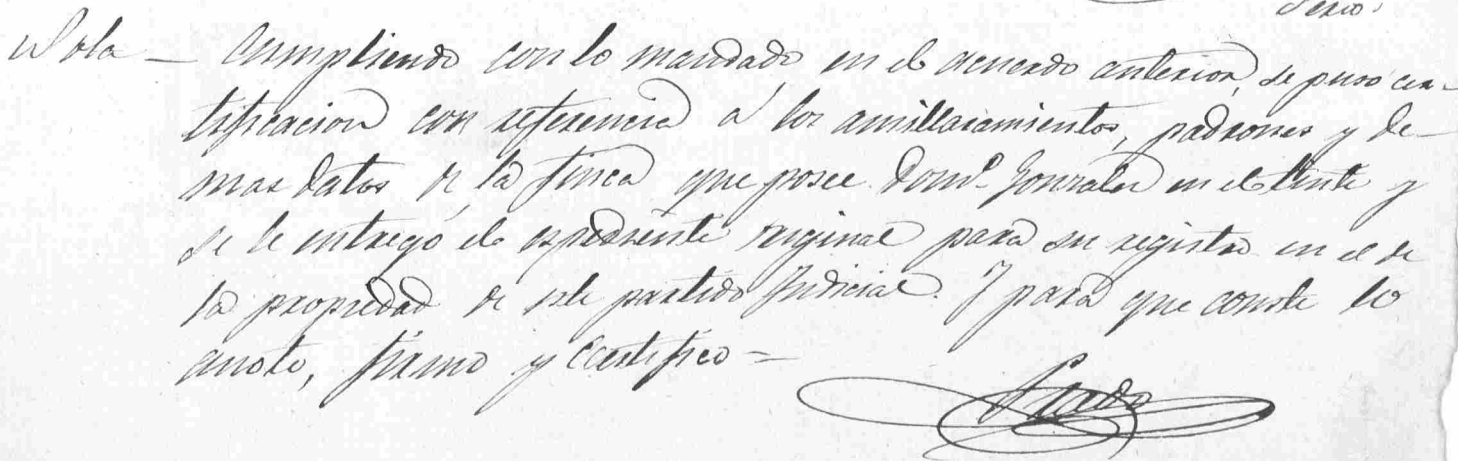 Srio.
Nota — Cumpliendo con lo mandado en el acuerdo anterior, se puso cer-
tificacion con referencia á los amillaramientos, padrones y de-
mas datos de la finca que posee Domº Gonzalez en el Ente y
se le entregó el espediente original para su registro en el de
la propiedad de este partido Judicial. Y para que conste lo
anoto, firmo y certifico =
Prado